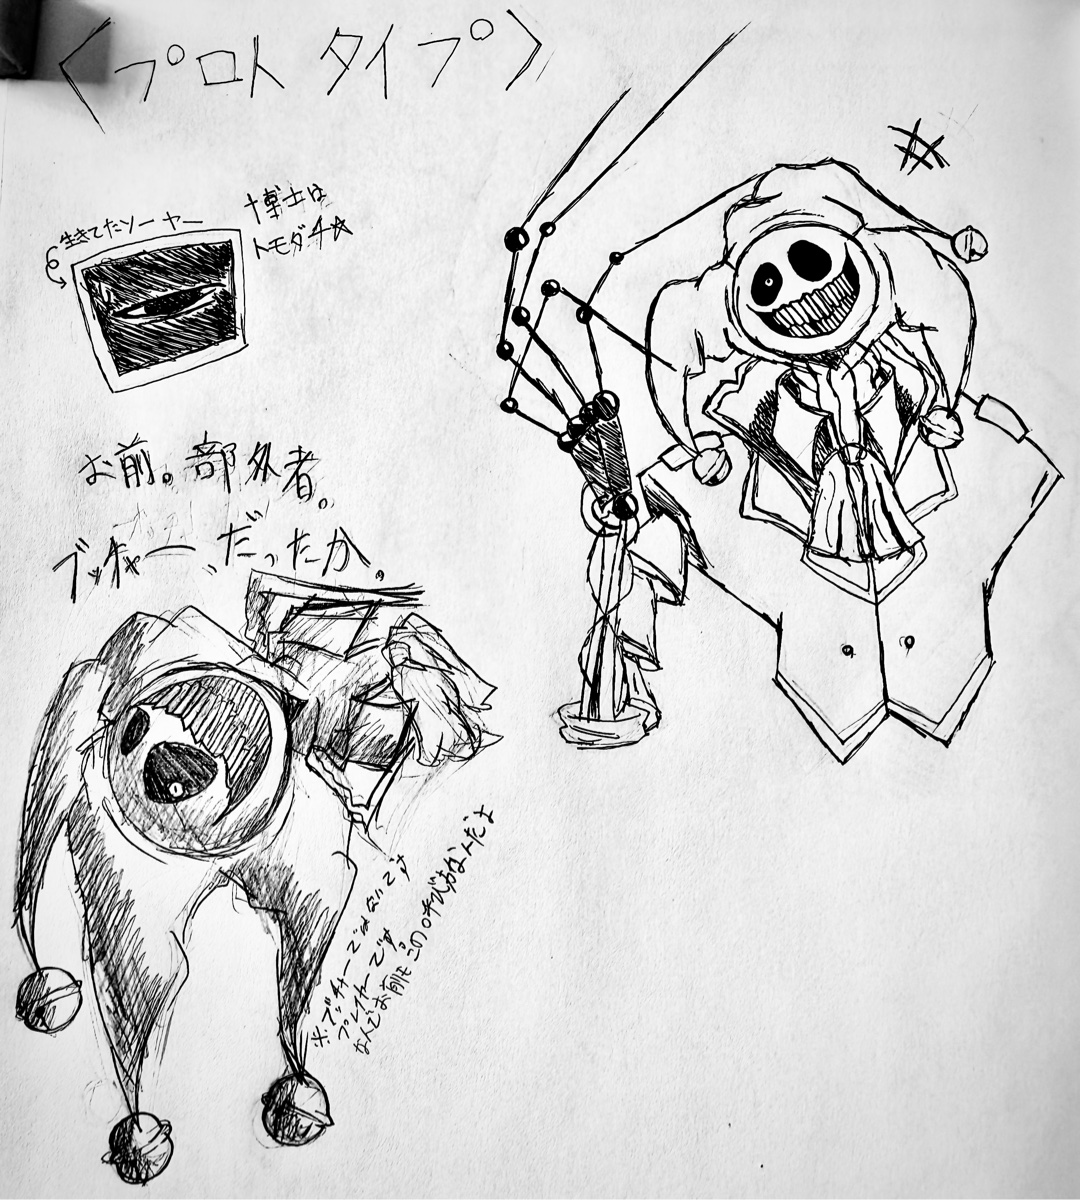 〈プロトタイプ〉
生きてたソーヤー
博士は
トモダチ☆
お前。部外者。
ブッチャー、だったか。
※ブッチャーではないです
プレイヤーです。
なんでお前もこの呼びかたなんだよ